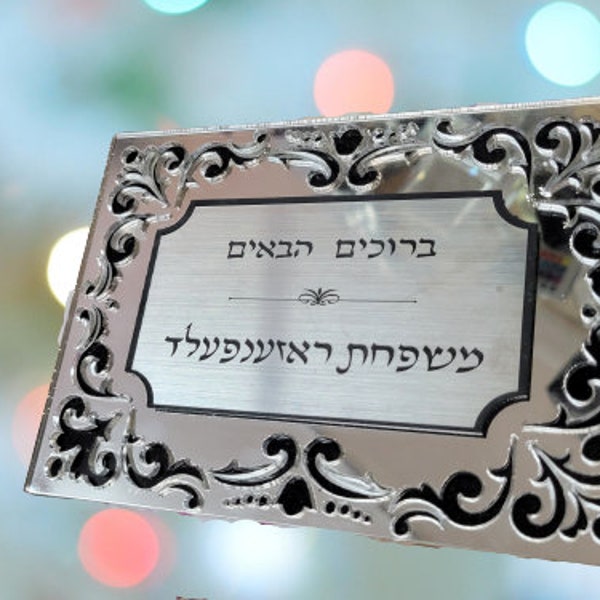 ברוכים הבאים
משפחת ראזענפעלד